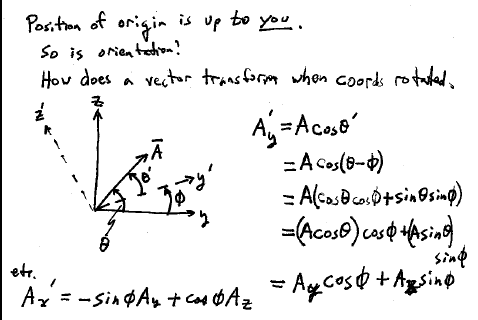 Position of origin is up to you.
So is orientation!
How does a vector transform when coords rotated.
z'
z
A
θ'
y'
ϕ
y
θ
A'y = A cosθ'
= A cos(θ-ϕ)
= A(cosθ cosϕ + sinθ sinϕ)
= (A cosθ) cosϕ + (A sinθ)
sinϕ
= Ay cosϕ + Az sinϕ
etc.
Az' = -sinϕ Ay + cosϕ Az